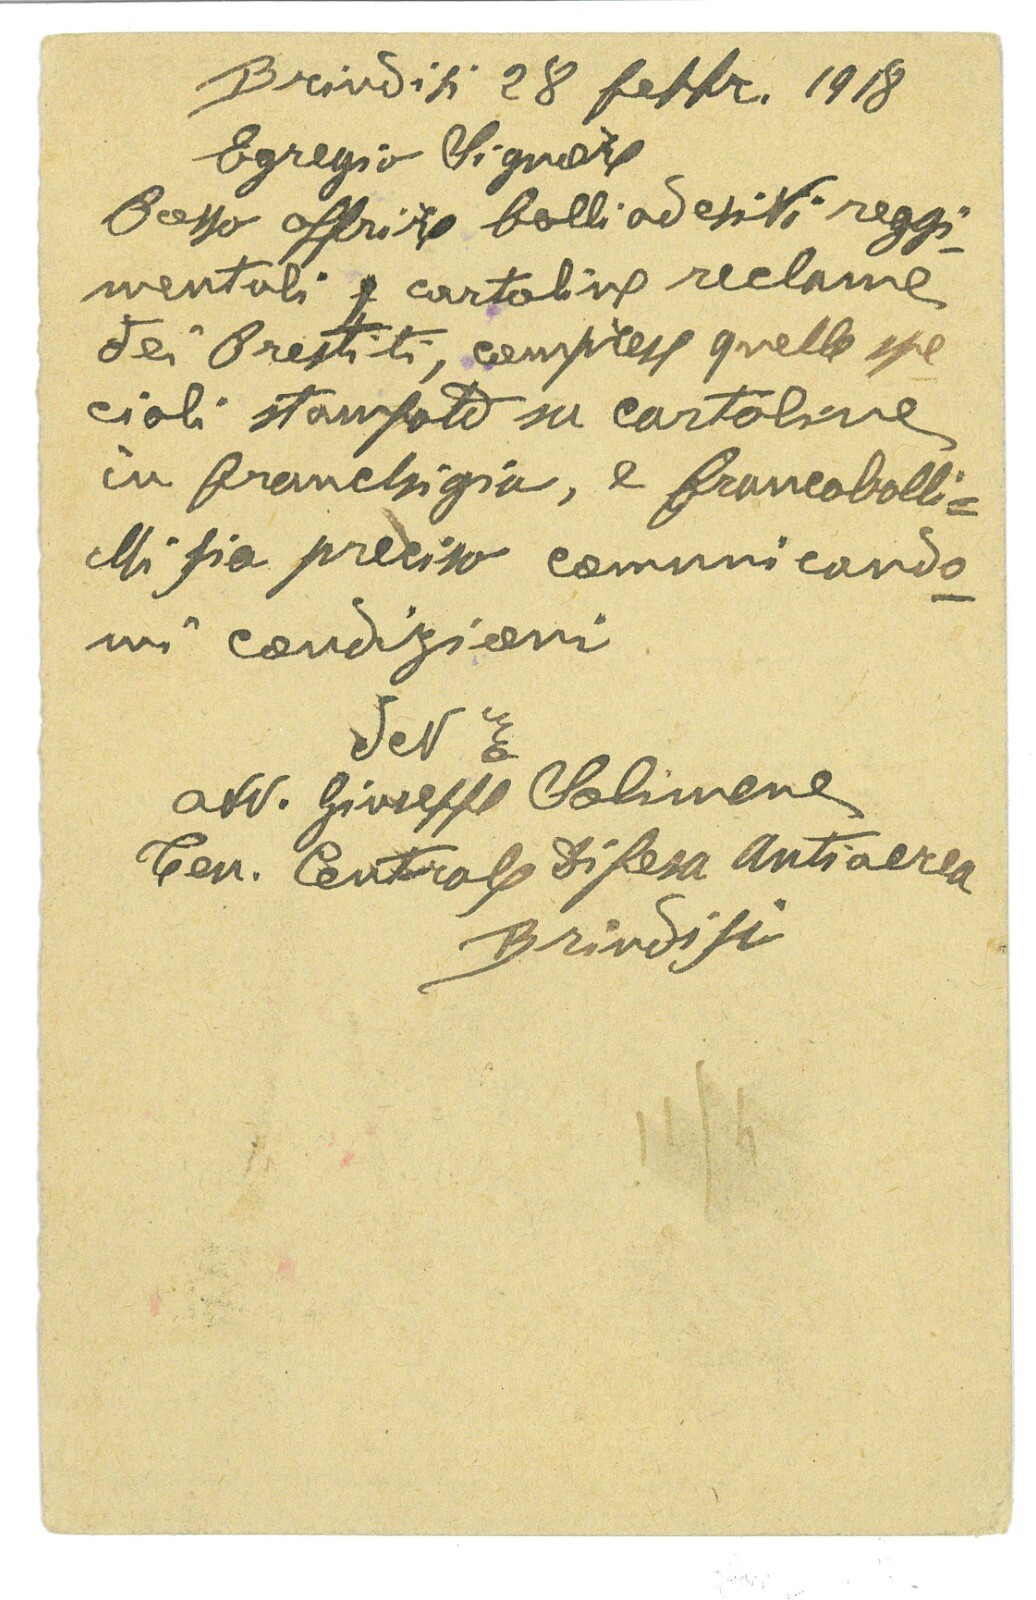 Brindisi 28 febbr. 1918
Egregio Signore
Posso offrire bolli adesivi reggi-
mentali e cartoline reclame
dei Prestiti, comprese quelle spe
ciali stampate su cartoline
in franchigia, e francobolli=
Mi sia preciso comunicando
mi condizioni
dev mo
avv. Giuseppe Solimene
Ten. Centrale Difesa Antiaerea
Brindisi
14/4